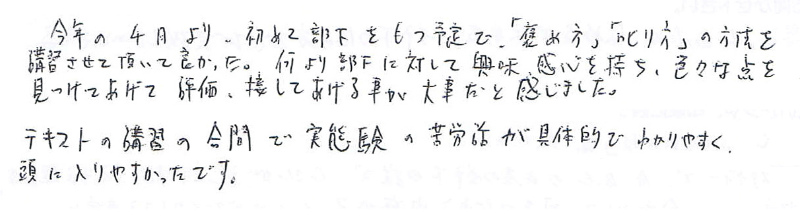 今年の4月より、初めて部下をもつ予定で、「褒め方」「叱り方」の方法を
講習させて頂いて良かった。何より部下に対して興味、感心を持ち、色々な点を
見つけてあげて評価、接してあげる事が大事だと感じました。
テキストの講習の合間で実態験の苦労話が具体的でわかりやすく、
頭に入りやすかったです。